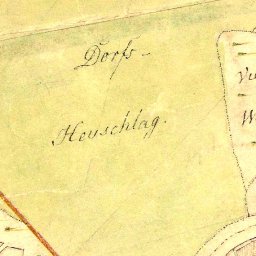 Dorfs-
Heuschlag.